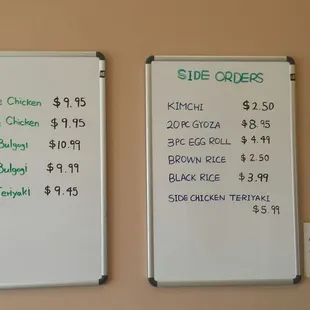 Chicken $9.95
Chicken $9.95
Bulgogi $10.99
Bulgogi $9.99
Teriyaki $9.45
SIDE ORDERS
KIMCHI $2.50
20PC GYOZA $8.95
3PC EGG ROLL $4.99
BROWN RICE $2.50
BLACK RICE $3.99
SIDE CHICKEN TERIYAKI
$5.99